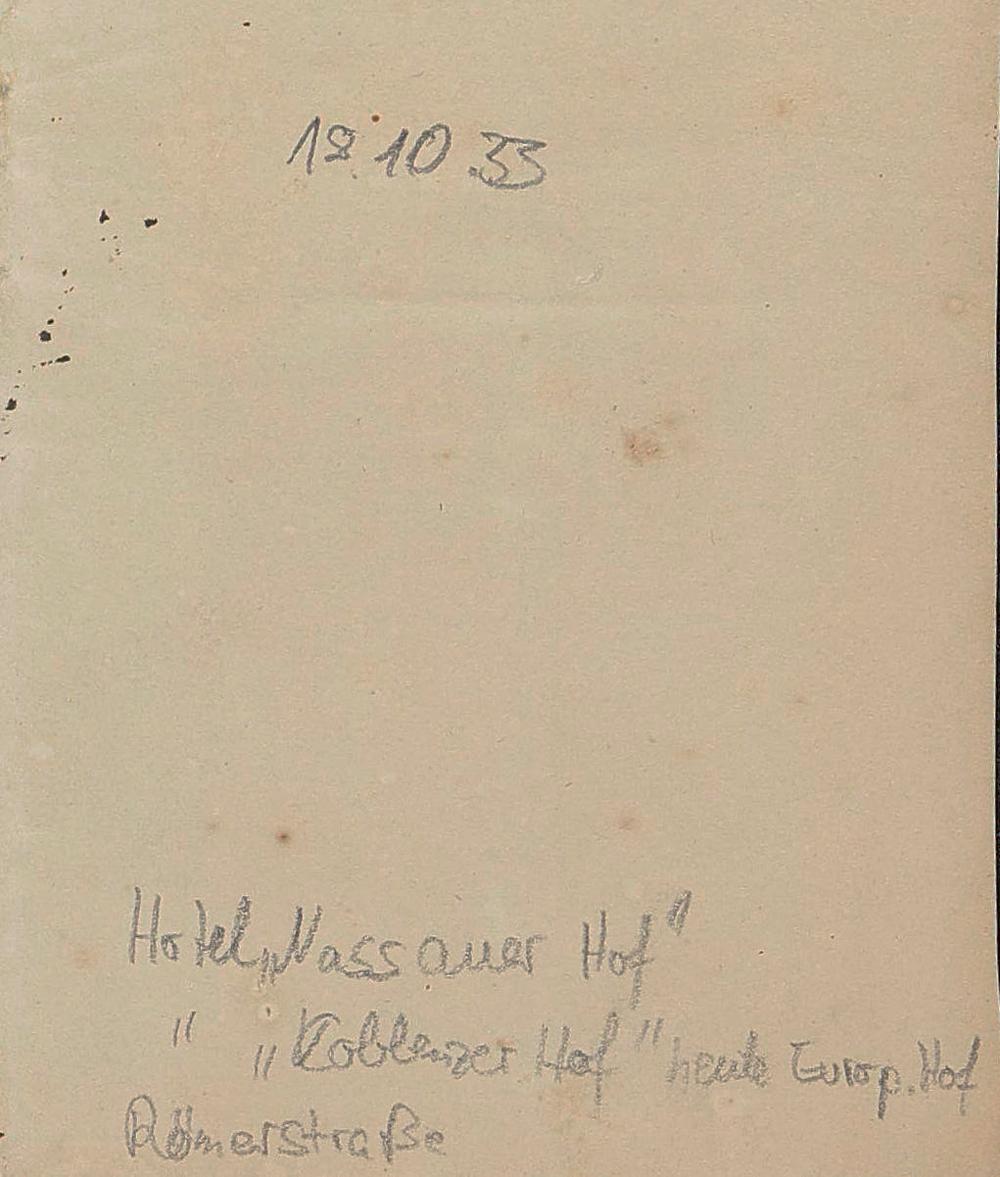 18.10.33
Hotel „Nassauer Hof"
" „Koblenzer Hof" heute Europ. Hof
Römerstraße